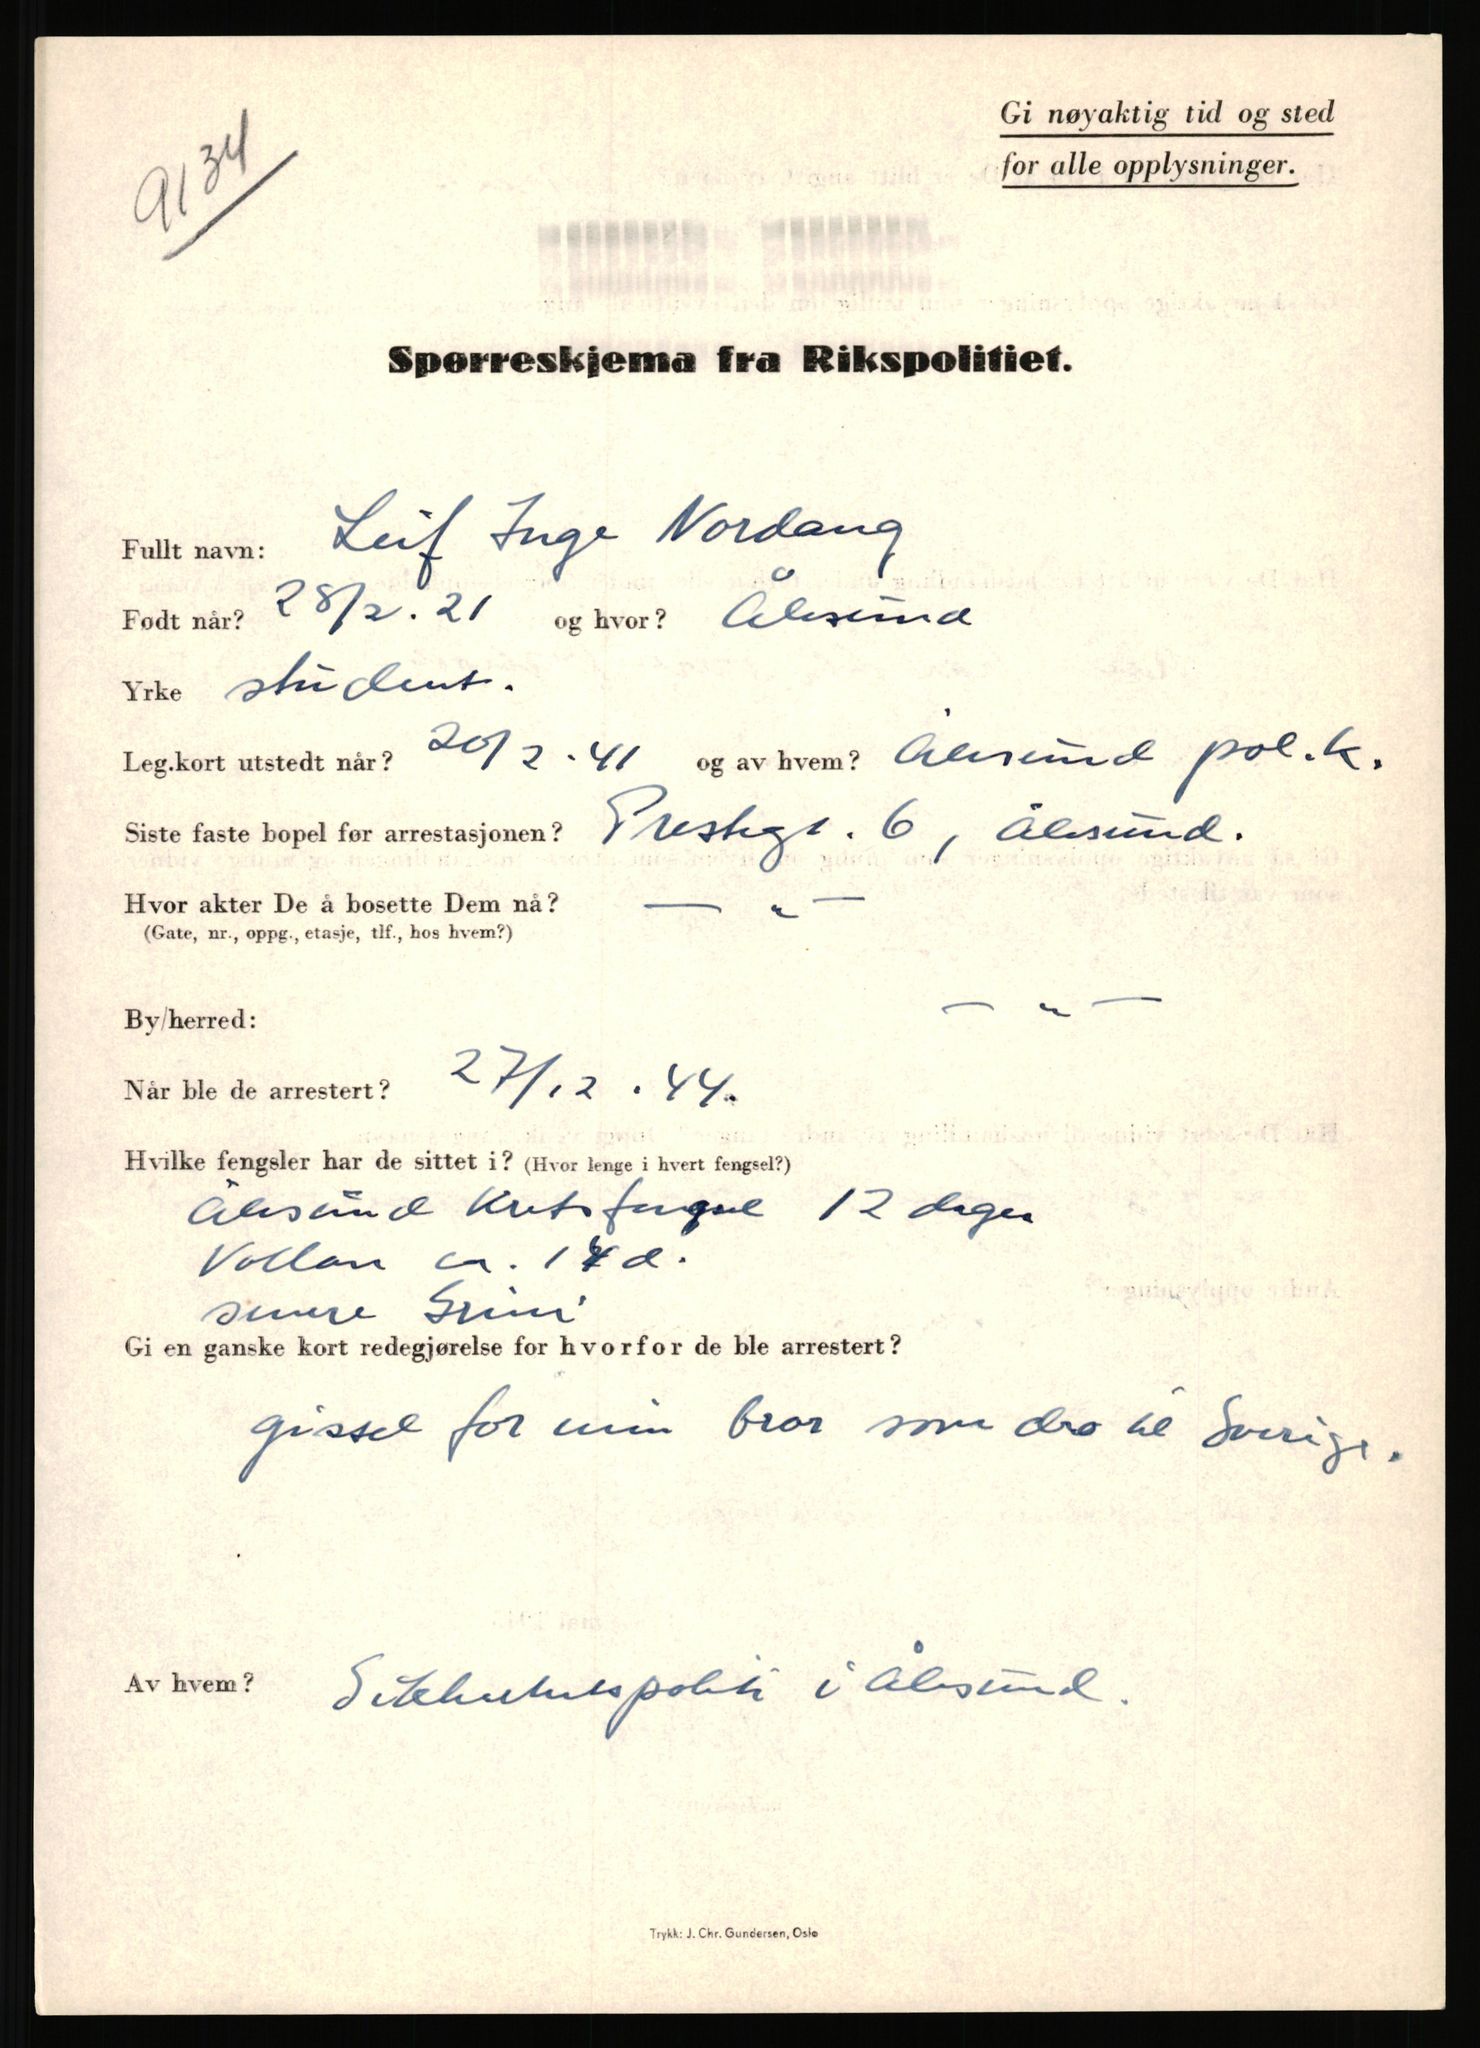 9134
Gi nøyaktig tid og sted
for alle opplysninger.
Spørreskjema fra Rikspolitiet.
Fullt navn: Leif Inge Nordang
Født når? 28/2.21 og hvor? Ålesund
Yrke student.
Leg.kort utstedt når? 20/2.41 og av hvem? Ålesund pol.k.
Siste faste bopel før arrestasjonen? Prestegt. 6, Ålesund.
Hvor akter De å bosette Dem nå? — " —
(Gate, nr., oppg., etasje, tlf., hos hvem?)
By/herred: — " —
Når ble de arrestert? 27/12.44.
Hvilke fengsler har de sittet i? (Hvor lenge i hvert fengsel?)
Ålesund Kretsfengsel 12 dager
Vollan ca. 14 d.
senere Grini
Gi en ganske kort redegjørelse for hvorfor de ble arrestert?
gissel for min bror som dro til Sverige.
Av hvem? Sikkerhetspoliti i Ålesund.
Trykk: J. Chr. Gundersen, Oslo